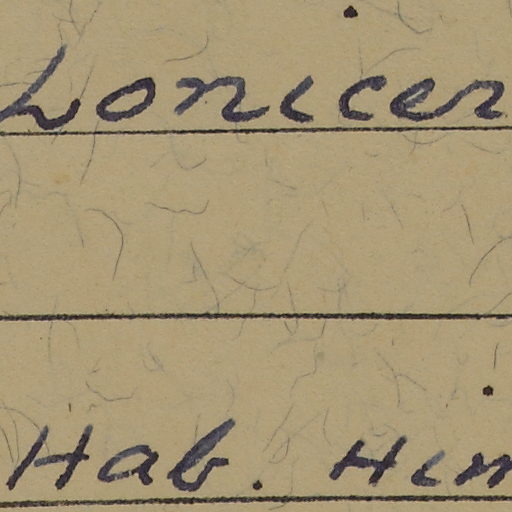 Lonicer
Hab. Him